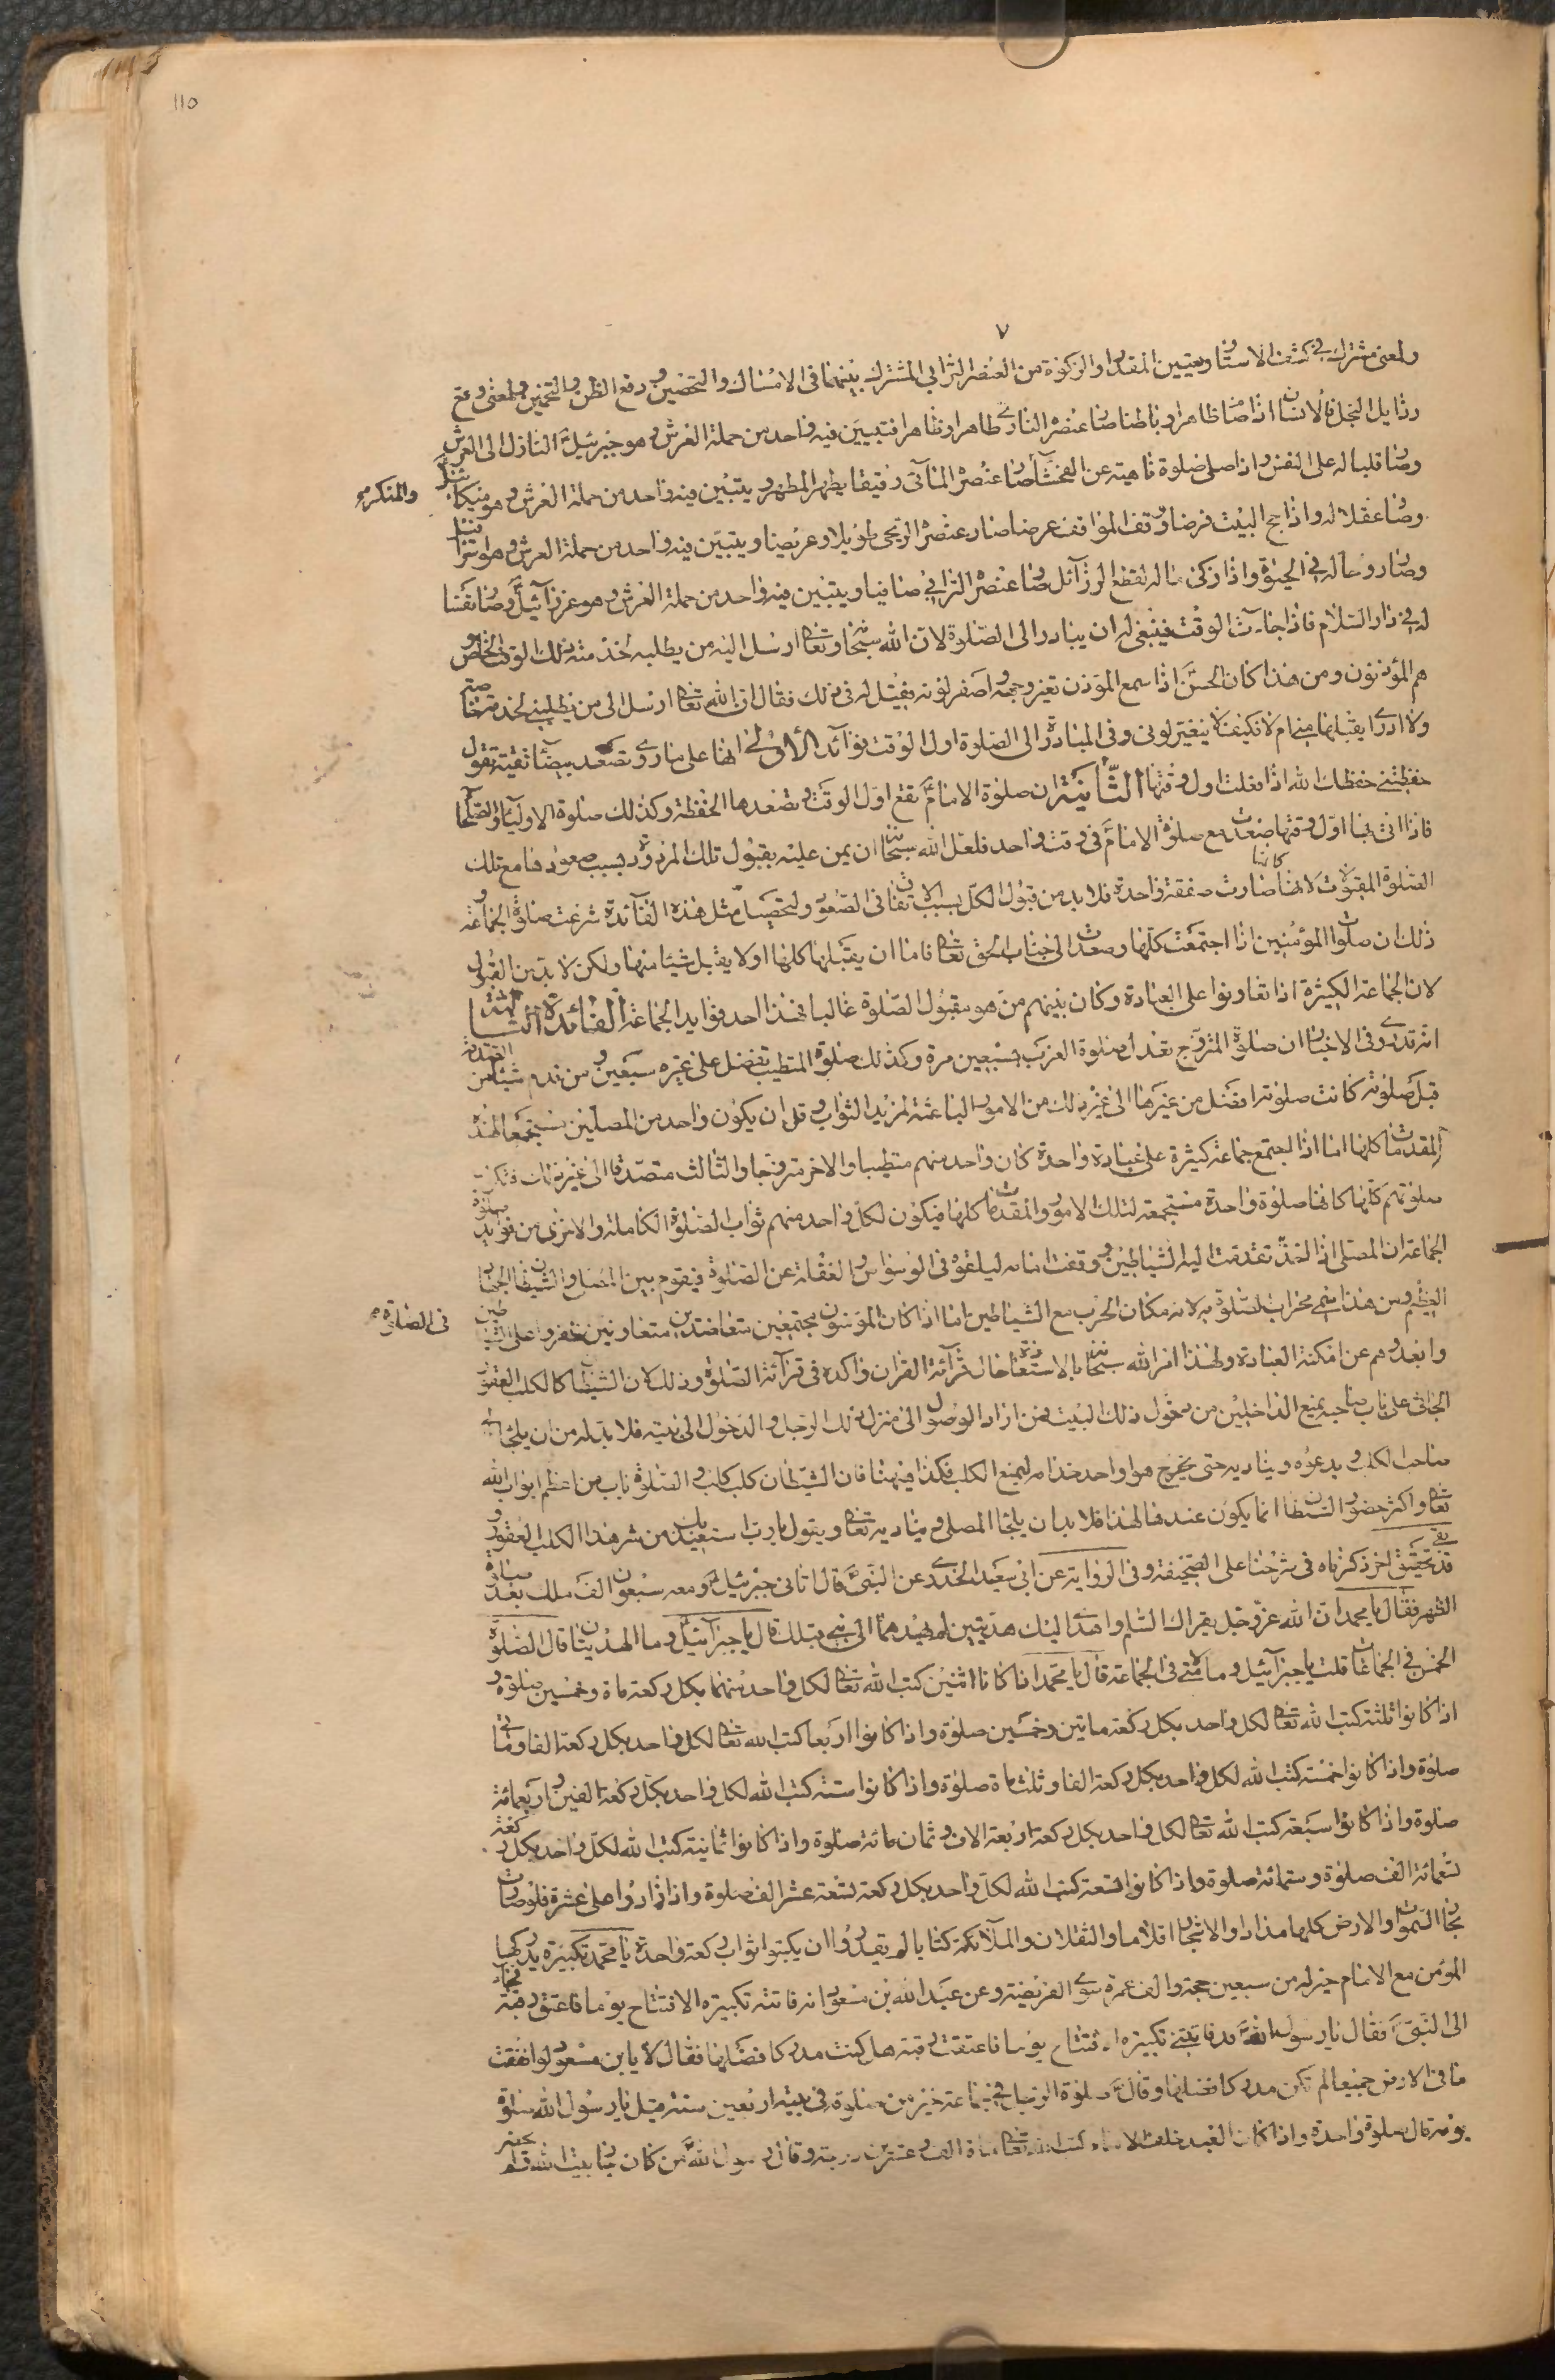 ١١٥
٧
ولمعنى مشترك في كشف الاستار وتعيين المقدار والزكوة من العنصر الترابي المشترك بينهما في الامساك والتحضين ورفع الظن والتخمين ولمعنى وقع
رذايل البخل فالانسان اذا صار ظاهرا وباطنا صار عنصره الناري طاهرا وظاهرا فتبين فيه واحد من حملة العرش وهو جبرئيل النازل الى العرش
وصار قلبا له على النفس واذا صلى صلوة ناهية عن الفحشاء صار عنصره المائي رقيقا يطهر المطهر ويتبين فيه واحد من حملة العرش وهو ميكائيل
والمنكر صح
وصار عقلا له واذا حج البيت فرضا وقف المواقف عرضا صار عنصره الريحي طويلا وعريضا ويتبين فيه واحد من حملة العرش وهو
وصار روحا له في الحيوة واذا زكى ماله لقطع الرذائل صار عنصره الترابي صافيا ويتبين فيه واحد من حملة العرش وهو عزرائيل وصار نفسا
له في دار السلام فاذا جاءت الوقت فينبغي له ان يبادر الى الصلوة لان الله سبحانه وتعالى ارسل اليه من يطلبه لخدمته ذلك الوقت الخاص و
هم المؤذنون ومن هذا كان الحسن اذا سمع المؤذن تغير وجهه واصفر لونه فقيل له في ذلك فقال ان الله تعالى ارسل الي من يطلبني لخدمته
ولا ادري ايقبلها مني ام لا فكيف لا يتغير لوني وفي المبادرة الى الصلوة اول الوقت فوائد الاولى انها على ما روي تصعد بيضاء نقية تقول
حفظتني حفظك الله اذا فعلت اول وقتها الثانية ان صلوة الامام تقع اول الوقت تصعدها الحفظة وكذلك صلوة الاولياء والصلحاء
فاذا اتى بها اول وقتها صعدت مع صلوة الامام في وقت واحد فلعل الله سبحانه ان يمن عليه بقبول تلك المردودة بسبب صعودها مع تلك
الصلوة المقبولات لانها كانها صارت صفقة واحدة فلا بد من قبول الكل بسبب الاتفاق في الصعود ولتحصيل مثل هذه الفائدة شرعت صلوة الجماعة
ذلك ان صلوات المؤمنين اذا اجتمعت كلها وصعدت الى جناب الحق تعالى فاما ان يقبلها كلها او لا يقبل شيئا منها ولكن لا بد من القبول
لان الجماعة الكثيرة اذا تعاونوا على العبادة وكان بينهم من هو مقبول الصلوة غالبا فهذا احد فوايد الجماعة الفائدة الثالثة
انه قد روي في الاخبار ان صلوة المتزوج تعدل صلوة العزب سبعين مرة وكذلك صلوة المتطيب تفضل على غيره سبعين ومن قدم شيئا من الصدقة
قبل صلوته كانت صلوته افضل من غيرها الى غير ذلك من الامور الباعثة لمزيد الثواب وقل ان يكون واحد من المصلين مستجمعا لهذه
المقدمات كلها اما اذا اجتمع جماعة كثيرة على عبادة واحدة كان واحد منهم متطيبا والاخر متزوجا والثالث متصدقا الى غير ذلك فتكون
صلوتهم كلها كانها صلوة واحدة مستجمعة لتلك الامور والمقدمات كلها فيكون لكل واحد منهم ثواب الصلوة الكاملة والاخرى من فوايد صلوة
الجماعة ان المصلي اذا اتخذ تقدمت اليه الشياطين ووقفت امامه ليلقوه في الوسواس والغفلة عن الصلوة فيقوم بين المصلي والشيطان الجهاد
العظيم ومن هذا سمي محراب الصلوة به لانه مكان الحرب مع الشياطين اما اذا كان المؤمنون مجتمعين متعاضدين متعاونين ظفروا على الشياطين
في الصلوة صح
وابعدوهم عن امكنة العبادة ولهذا امر الله سبحانه بالاستعاذة حال قرائة القران واكده في قرائة الصلوة وذلك لان الشيطان كالكلب العقور
الجاثي على باب صاحبه يمنع الداخلين من دخول ذلك البيت فمن اراد الوصول الى منزل ذلك الرجل والدخول الى بيته فلا بد له من ان يلتجا الى
صاحب الكلب ويدعوه ويناديه حتى يخرج هو او احد خدامه ليمنع الكلب فكذا فيهنا فان الشيطان كلب كلب والصلوة باب من اعظم ابواب الله
تعالى واكثر حضور الشيطان انما يكون عندها لهذا فلا بد ان يلتجا المصلي ويناديه تعالى ويقول يارب استعيذ بك من شر هذا الكلب العقور و
قد بقي تحقيق اخر ذكرناه في شرحنا على الصحيفة وفي الرواية عن ابي سعيد الخدري عن النبي قال اتاني جبرئيل ومعه سبعون الف ملك بعد صلوة
الظهر فقال يا محمد ان الله عز وجل يقرئك السلم واهدى اليك هديتين لم يهدهما الى نبي قبلك قال يا جبرائيل وما الهديتان قال الصلوة
الخمس في الجماعات قلت يا جبرائيل وما لامتي في الجماعة قال يا محمد اذا كانا اثنين كتب الله تعالى لكل واحد منهما بكل ركعة مائة وخمسين صلوة و
اذا كانوا ثلثة كتب الله تعالى لكل واحد بكل ركعة ماتين وخمسين صلوة واذا كانوا اربعا كتب الله تعالى لكل واحد بكل ركعة الفا ومائتي
صلوة واذا كانوا خمسة كتب الله لكل واحد بكل ركعة الفا وثلثماة صلوة واذا كانوا ستة كتب الله لكل واحد بكل ركعة الفين واربعمائة
صلوة واذا كانوا سبعة كتب الله تعالى لكل واحد بكل ركعة اربعة الاف وثمان مائة صلوة واذا كانوا ثمانية كتب الله لكل واحد بكل ركعة
تسعمائة الف صلوة وستمائة صلوة واذا كانوا تسعة كتب الله لكل واحد بكل ركعة تسعة عشر الف صلوة واذا زادوا على عشرة فلو صارت
بحار السموات والارض كلها مدادا والاشجار اقلاما والثقلان والملائكة كتابا لم يقدروا ان يكتبوا ثواب ركعة واحدة يا محمد تكبيرة يدركها
المؤمن مع الامام خير له من سبعين حجة والف عمرة سوى الفريضة وعن عبد الله بن مسعود انه فاتته تكبيرة الافتتاح يوما فاعتق رقبة فجاء
الى النبي فقال يا رسول الله قد فاتتني تكبيرة الافتتاح يوما فاعتقت رقبة هل كنت مدركا فضلها فقال لا يا بن مسعود لو انفقت
ما في الارض جميعا لم تكن مدركا فضلها وقال صلوة الرجل في جماعة خير من صلوة في بيته اربعين سنة قيل يا رسول الله صلوة
يوم قال صلوة واحدة واذا كان العبد خلف الامام كتب الله تعالى مائة الف وعشرين درجة وقال رسول الله من كان بجار بيت الله فلم يحضر